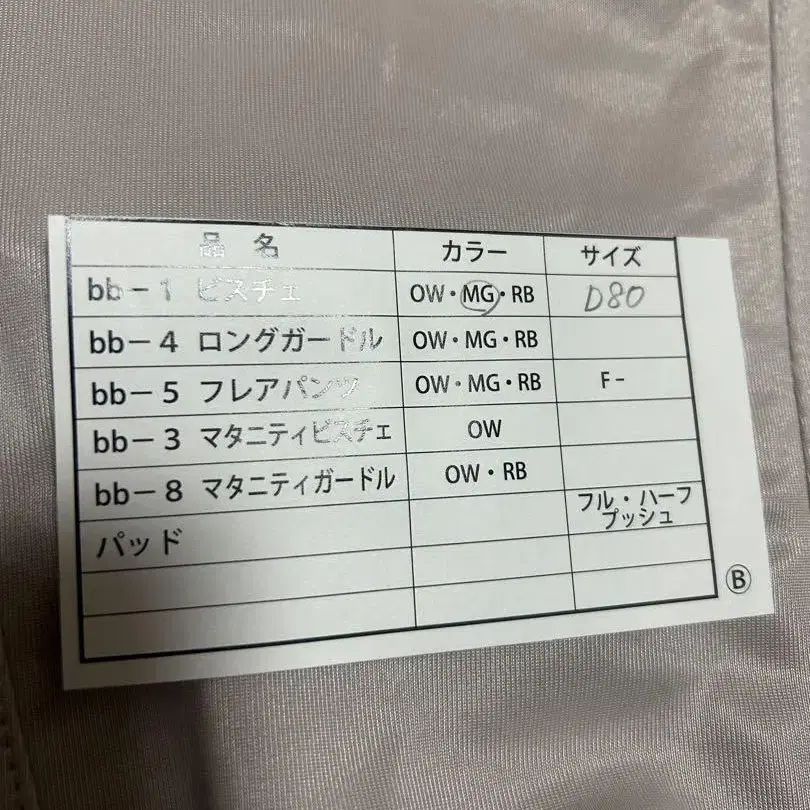 品 名 カラー サイズ
bb－1 ビスチェ OW・MG・RB D80
bb－4 ロングガードル OW・MG・RB
bb－5 フレアパンツ OW・MG・RB F-
bb－3 マタニティビスチェ OW
bb－8 マタニティガードル OW・RB
パッド フル・ハーフ
プッシュ
Ⓑ